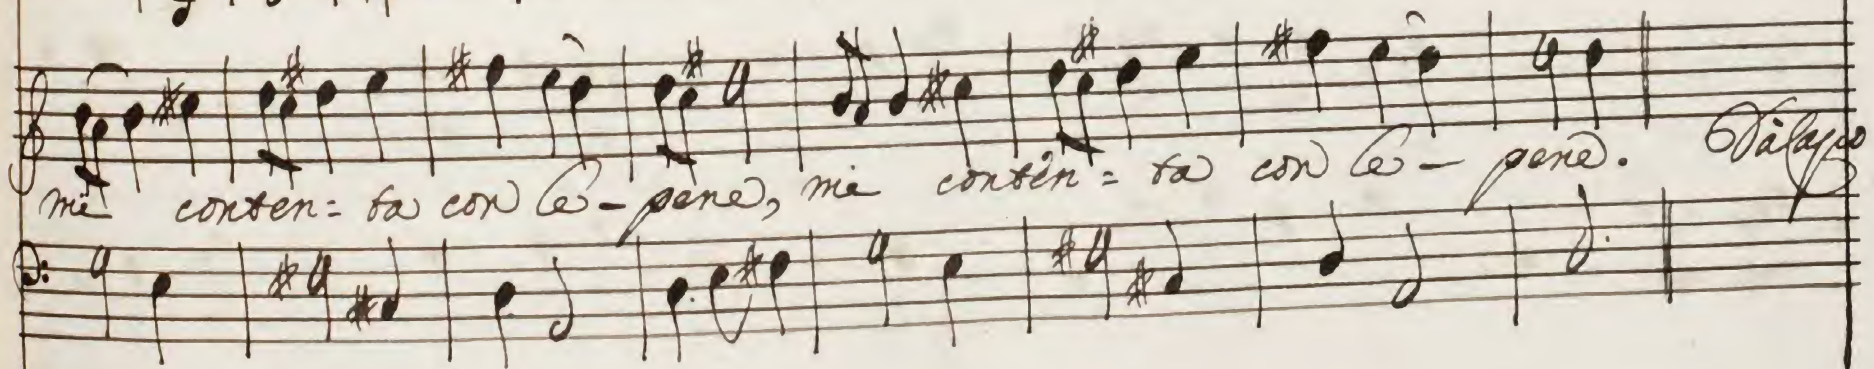 me conten= ta con le - pene, me conten= ta con le - pene. Dal segno